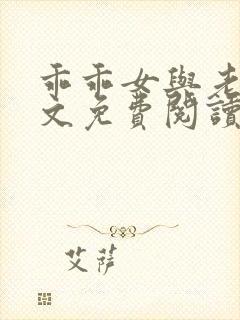 乖乖女與老
文免費閱讀
艾薩